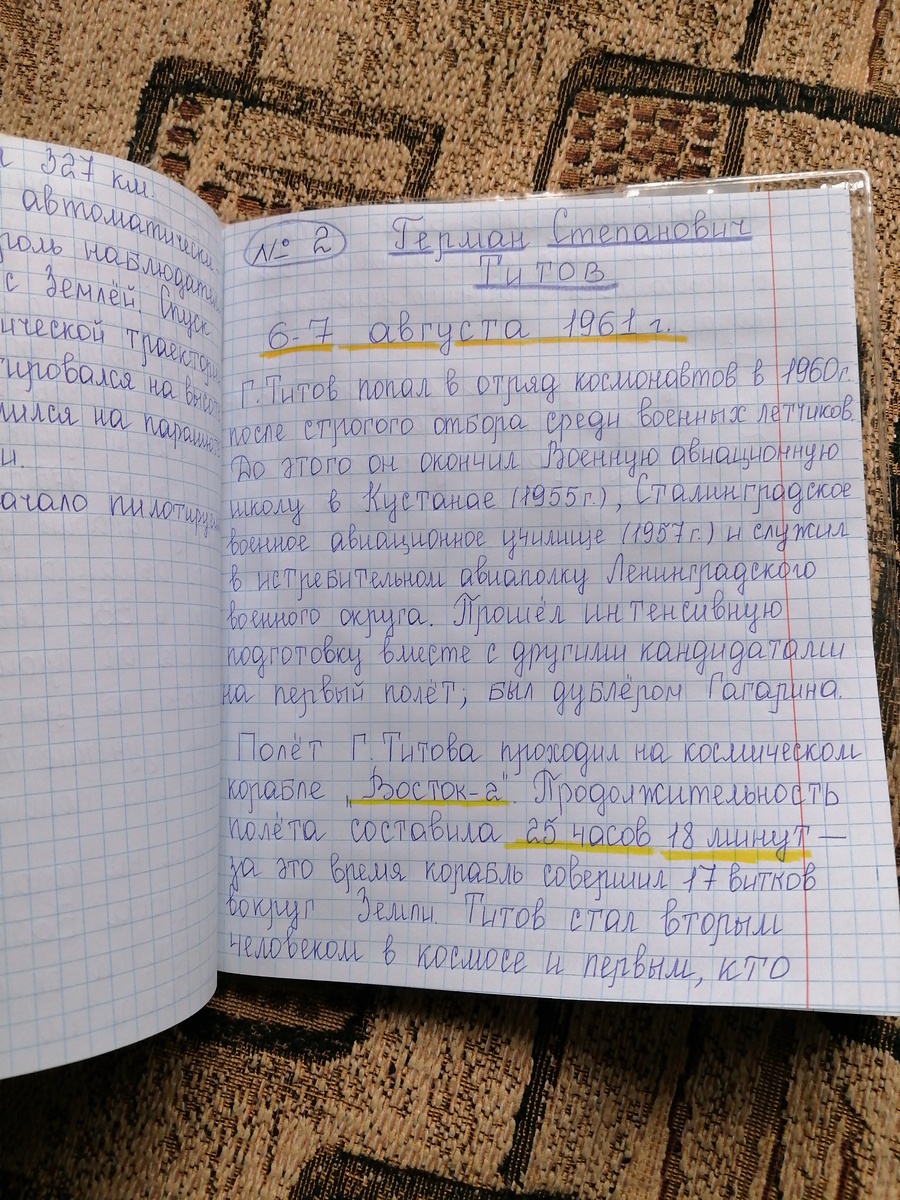 327 км.
автоматически
роль наблюдат
с Землёй. Спуск
ической траектори
тировался на высот
лился на парашют
и.
ачало пилотируе
№ 2
Герман Степанович
Титов
6-7 августа 1961 г.
Г. Титов попал в отряд космонавтов в 1960г.
после строгого отбора среди военных лётчиков.
До этого он окончил Военную авиационную
школу в Кустанае (1955г.), Сталинградское
военное авиационное училище (1957г.) и служил
в истребительном авиаполку Ленинградского
военного округа. Прошёл интенсивную
подготовку вместе с другими кандидатами
на первый полёт; был дублёром Гагарина.
Полёт Г. Титова проходил на космическом
корабле „Восток-2". Продолжительность
полёта составила 25 часов 18 минут —
за это время корабль совершил 17 витков
вокруг Земли. Титов стал вторым
человеком в космосе и первым, кто